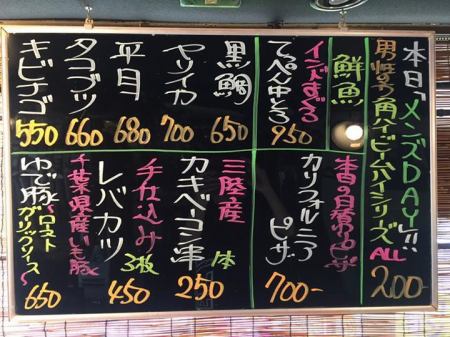 本日「メンズDAY」!!
男性の方角ハイ・ビームハイシリーズ
ALL
200-
鮮魚
インドまぐろ
てっぺん中とろ
950
黒鯛
650
ヤリイカ
700
平目
680
タコブツ
660
キビナゴ
550
本日の日替わりピザ
カリフォルニア
ピザ
700-
三陸産
カキベーコン串
1本
250
手仕込み
レバカツ
3枚
450
千葉県産いも豚
ゆで豚
〜ロースト
ガーリックソース〜
650